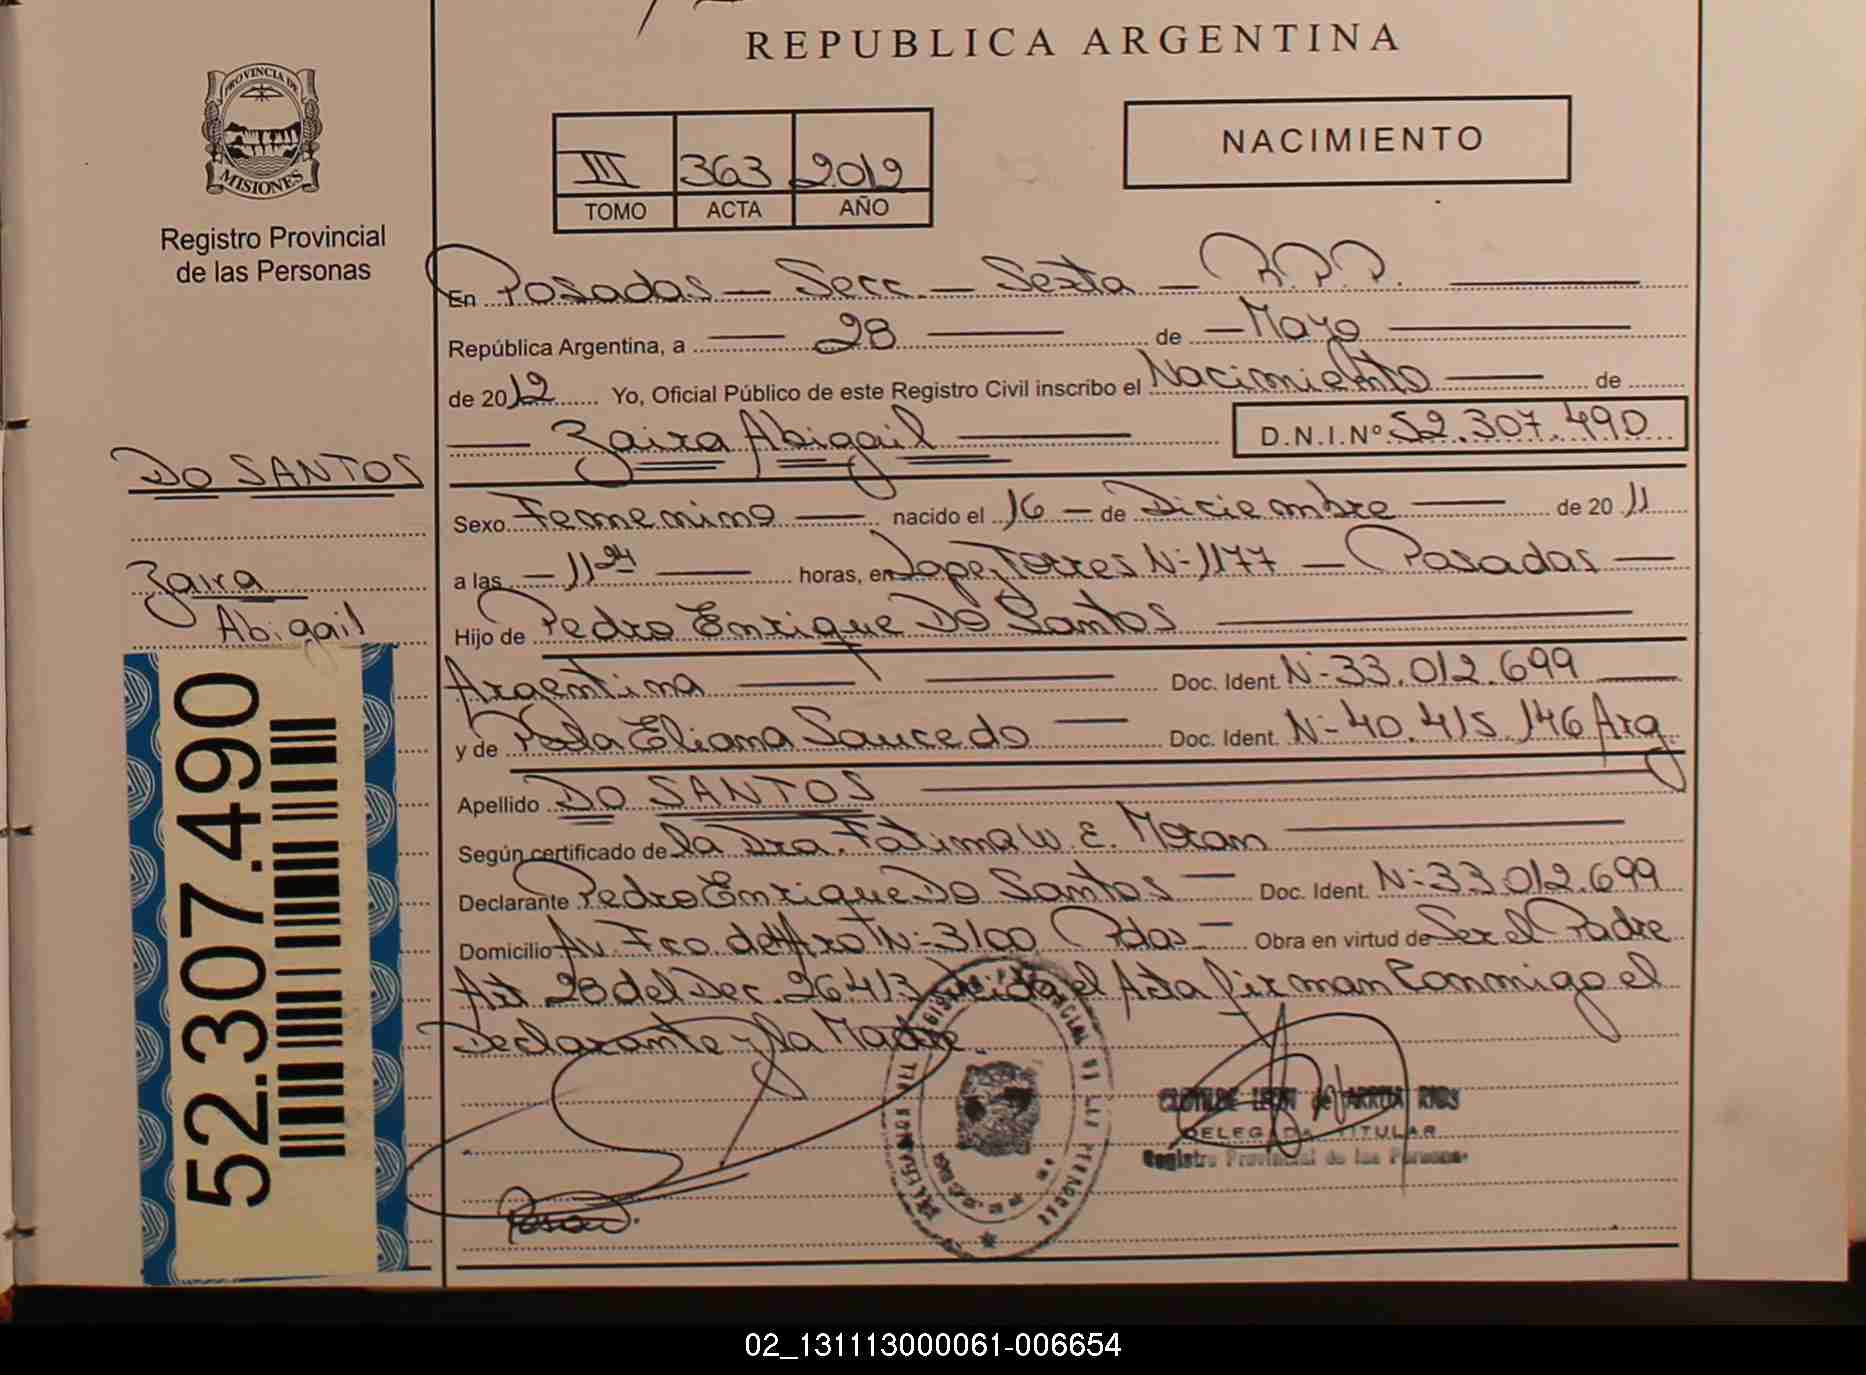 REPUBLICA ARGENTINA
PROVINCIA DE
MISIONES
Registro Provincial
de las Personas
III 363 2012
TOMO ACTA AÑO
NACIMIENTO
En Posadas — Secc. — Sexta — R.P.P. —
República Argentina, a — 28 — de — Mayo —
de 2012 Yo, Oficial Público de este Registro Civil inscribo el Nacimiento — de
— Zaira Abigail — D.N.I.Nº 52.307.490
DO SANTOS
Zaira
Abigail
52.307.490
Sexo Femenino — nacido el 16 — de Diciembre — de 2011
a las — 11 24 — horas, en Lopez Torres N-1177 — Posadas —
Hijo de Pedro Enrique Do Santos —
Argentina — — Doc. Ident. N-33.012.699 —
y de Eliana Saucedo — Doc. Ident. N-40.415.146 Arg.
Apellido DO SANTOS —
Según certificado de la Dra. Fatima W. E. Moran —
Declarante Pedro Enrique Do Santos — Doc. Ident. N-33.012.699
Domicilio Av. Fco. de Haro N-3100 Pdas — Obra en virtud de Ser el Padre
Art 28 del Dec. 26413 Leida el Acta firman Conmigo el
Declarante y la Madre.
CLOTILDE LEON de ARRUA RIOS
DELEGADA TITULAR
Registro Provincial de las Personas
02_131113000061-006654